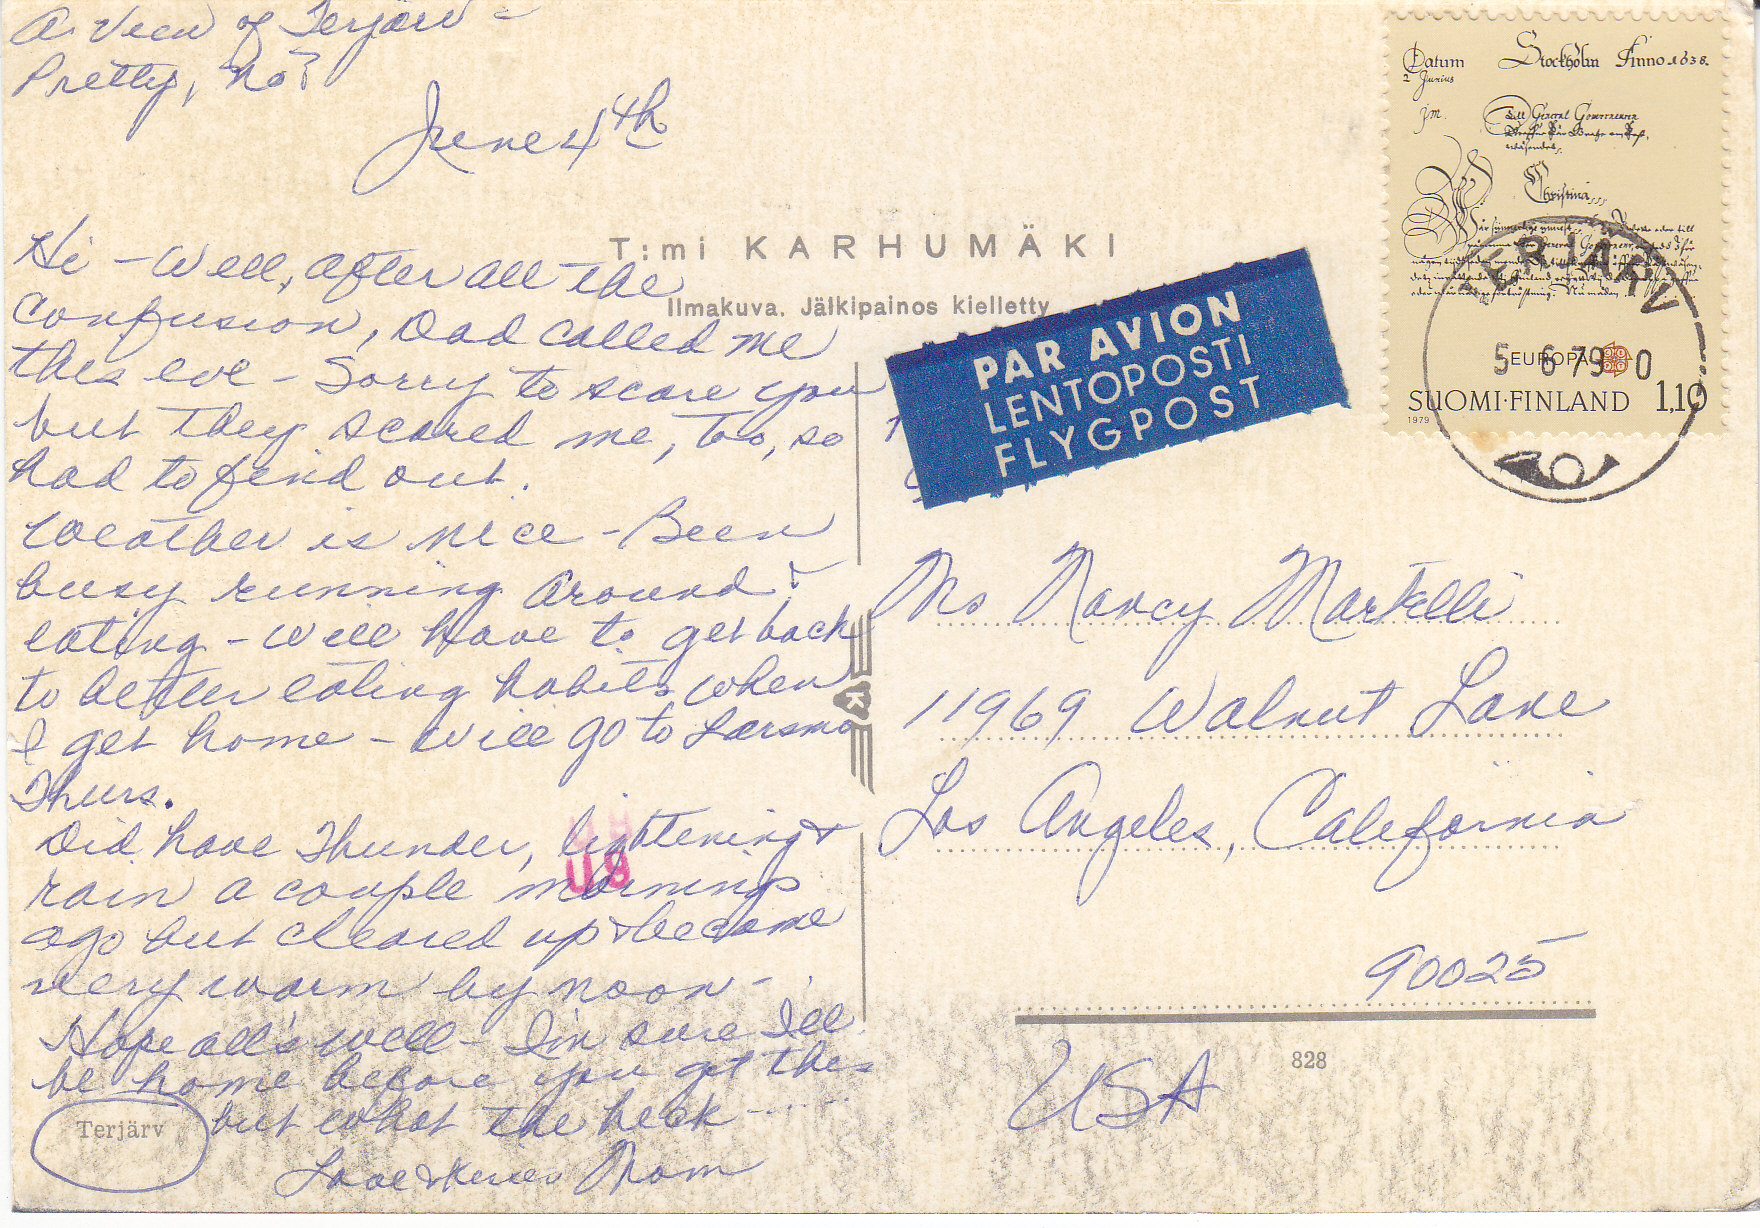 A View of Terjärv -
Pretty, no?
June 4th
T:mi KARHUMÄKI
Ilmakuva. Jälkipainos kielletty
Hi - Well, after all the
confusion, Dad called me
this eve - Sorry to scare you
but they scared me, too, so
had to find out.
Weather is nice - Been
busy running around &
eating - will have to get back
to better eating habits when
I get home - Will go to Larsmo
Thurs.
Did have Thunder, lightening &
rain a couple mornings
ago but cleared up & became
very warm by noon -
Hope all's well - I'm sure I'll
be home before you get this
but what the heck ------
Love & Kisses Mom
Terjärv
PAR AVION
LENTOPOSTI
FLYGPOST
Datum Stockholm Anno 1638.
2 Junius
Christina
TERJÄRV
5 6 79 0
EUROPA
SUOMI·FINLAND 1,10
1979
Ms Nancy Martelli
11969 Walnut Lane
Los Angeles, California
90025
USA
828